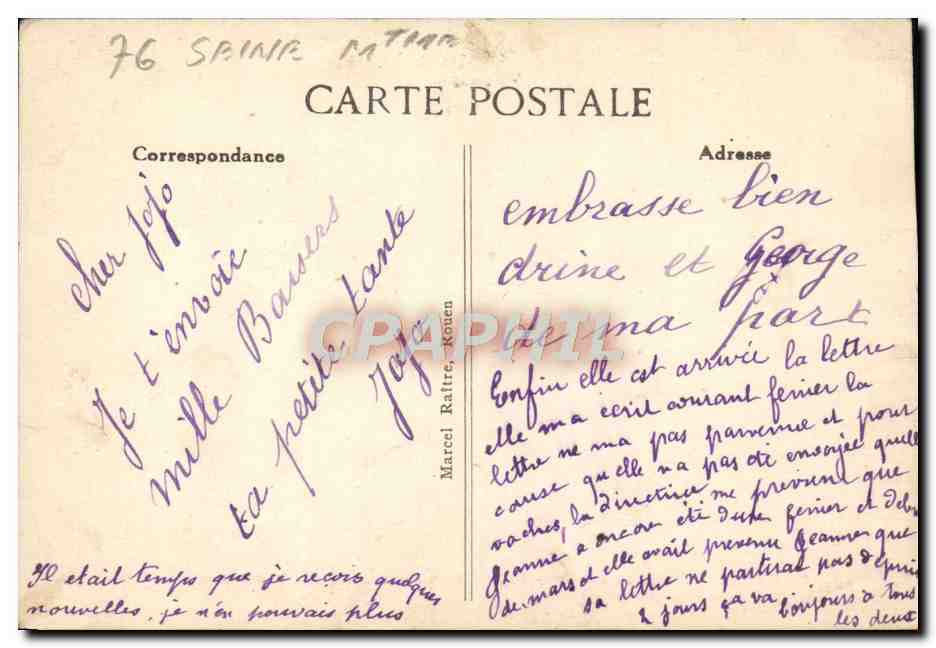 76 SEINE MTME
CARTE POSTALE
Correspondance
Adresse
cher Jojo
Je t'envoie
mille Baisers
ta petite tante
Jojo
Il etait temps que je recois quelques
nouvelles, je n'en pouvais plus
Marcel Raître, Rouen
embrasse bien
drine et George
de ma part
Enfin elle est arrivée la lettre
elle m'a ecrit courant fevrier la
lettre ne m'a pas parvenue et pour
cause qu'elle n'a pas été envoyée quelle
vaches, la directrice me previens que
Jeanne a encore été dure fevrier et debu
de mars et elle avait prevenu Jeanne que
sa lettre ne partirai pas depuis
2 jours ça va bonjours a tous
les deux
CPAPHIL